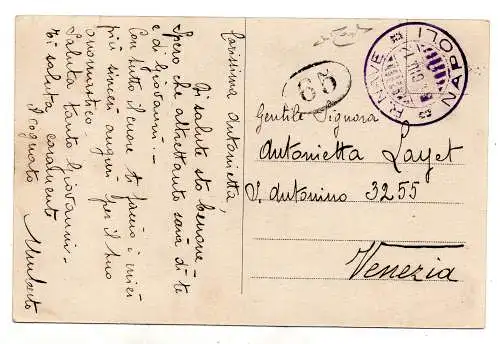 Carissima Antonietta,
Di salute sto benone
Spero che altrettanto sarà di te
e di Giovanni -
Con tutto il cuore ti invio i miei
più sinceri auguri per il tuo
onomastico
Saluta tanto Giovanni -
Ti saluta caramente
Il cognato
Umberto
R. NAVE NAPOLI
Gentile Signora
Antonietta Layet
S. Antonino 3255
Venezia